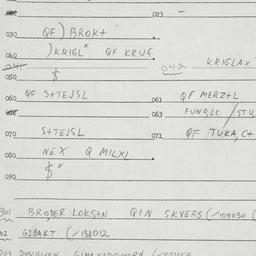 023 —
030 QF ) BROKT
040 ) KRIGL x QF KRUG.
042 KRIGLAX
050 $
060 QF S+TEJSL
061 QF MERZ+L
063 FUND,LC / STU,
070 S+TEJSL
072 QF TUKA, C+
080 NEX Q MILXL
090 $ x
901 BRODER LOKS+N QIN SKVERS (/109030 (
02 GIBAKT (/138012